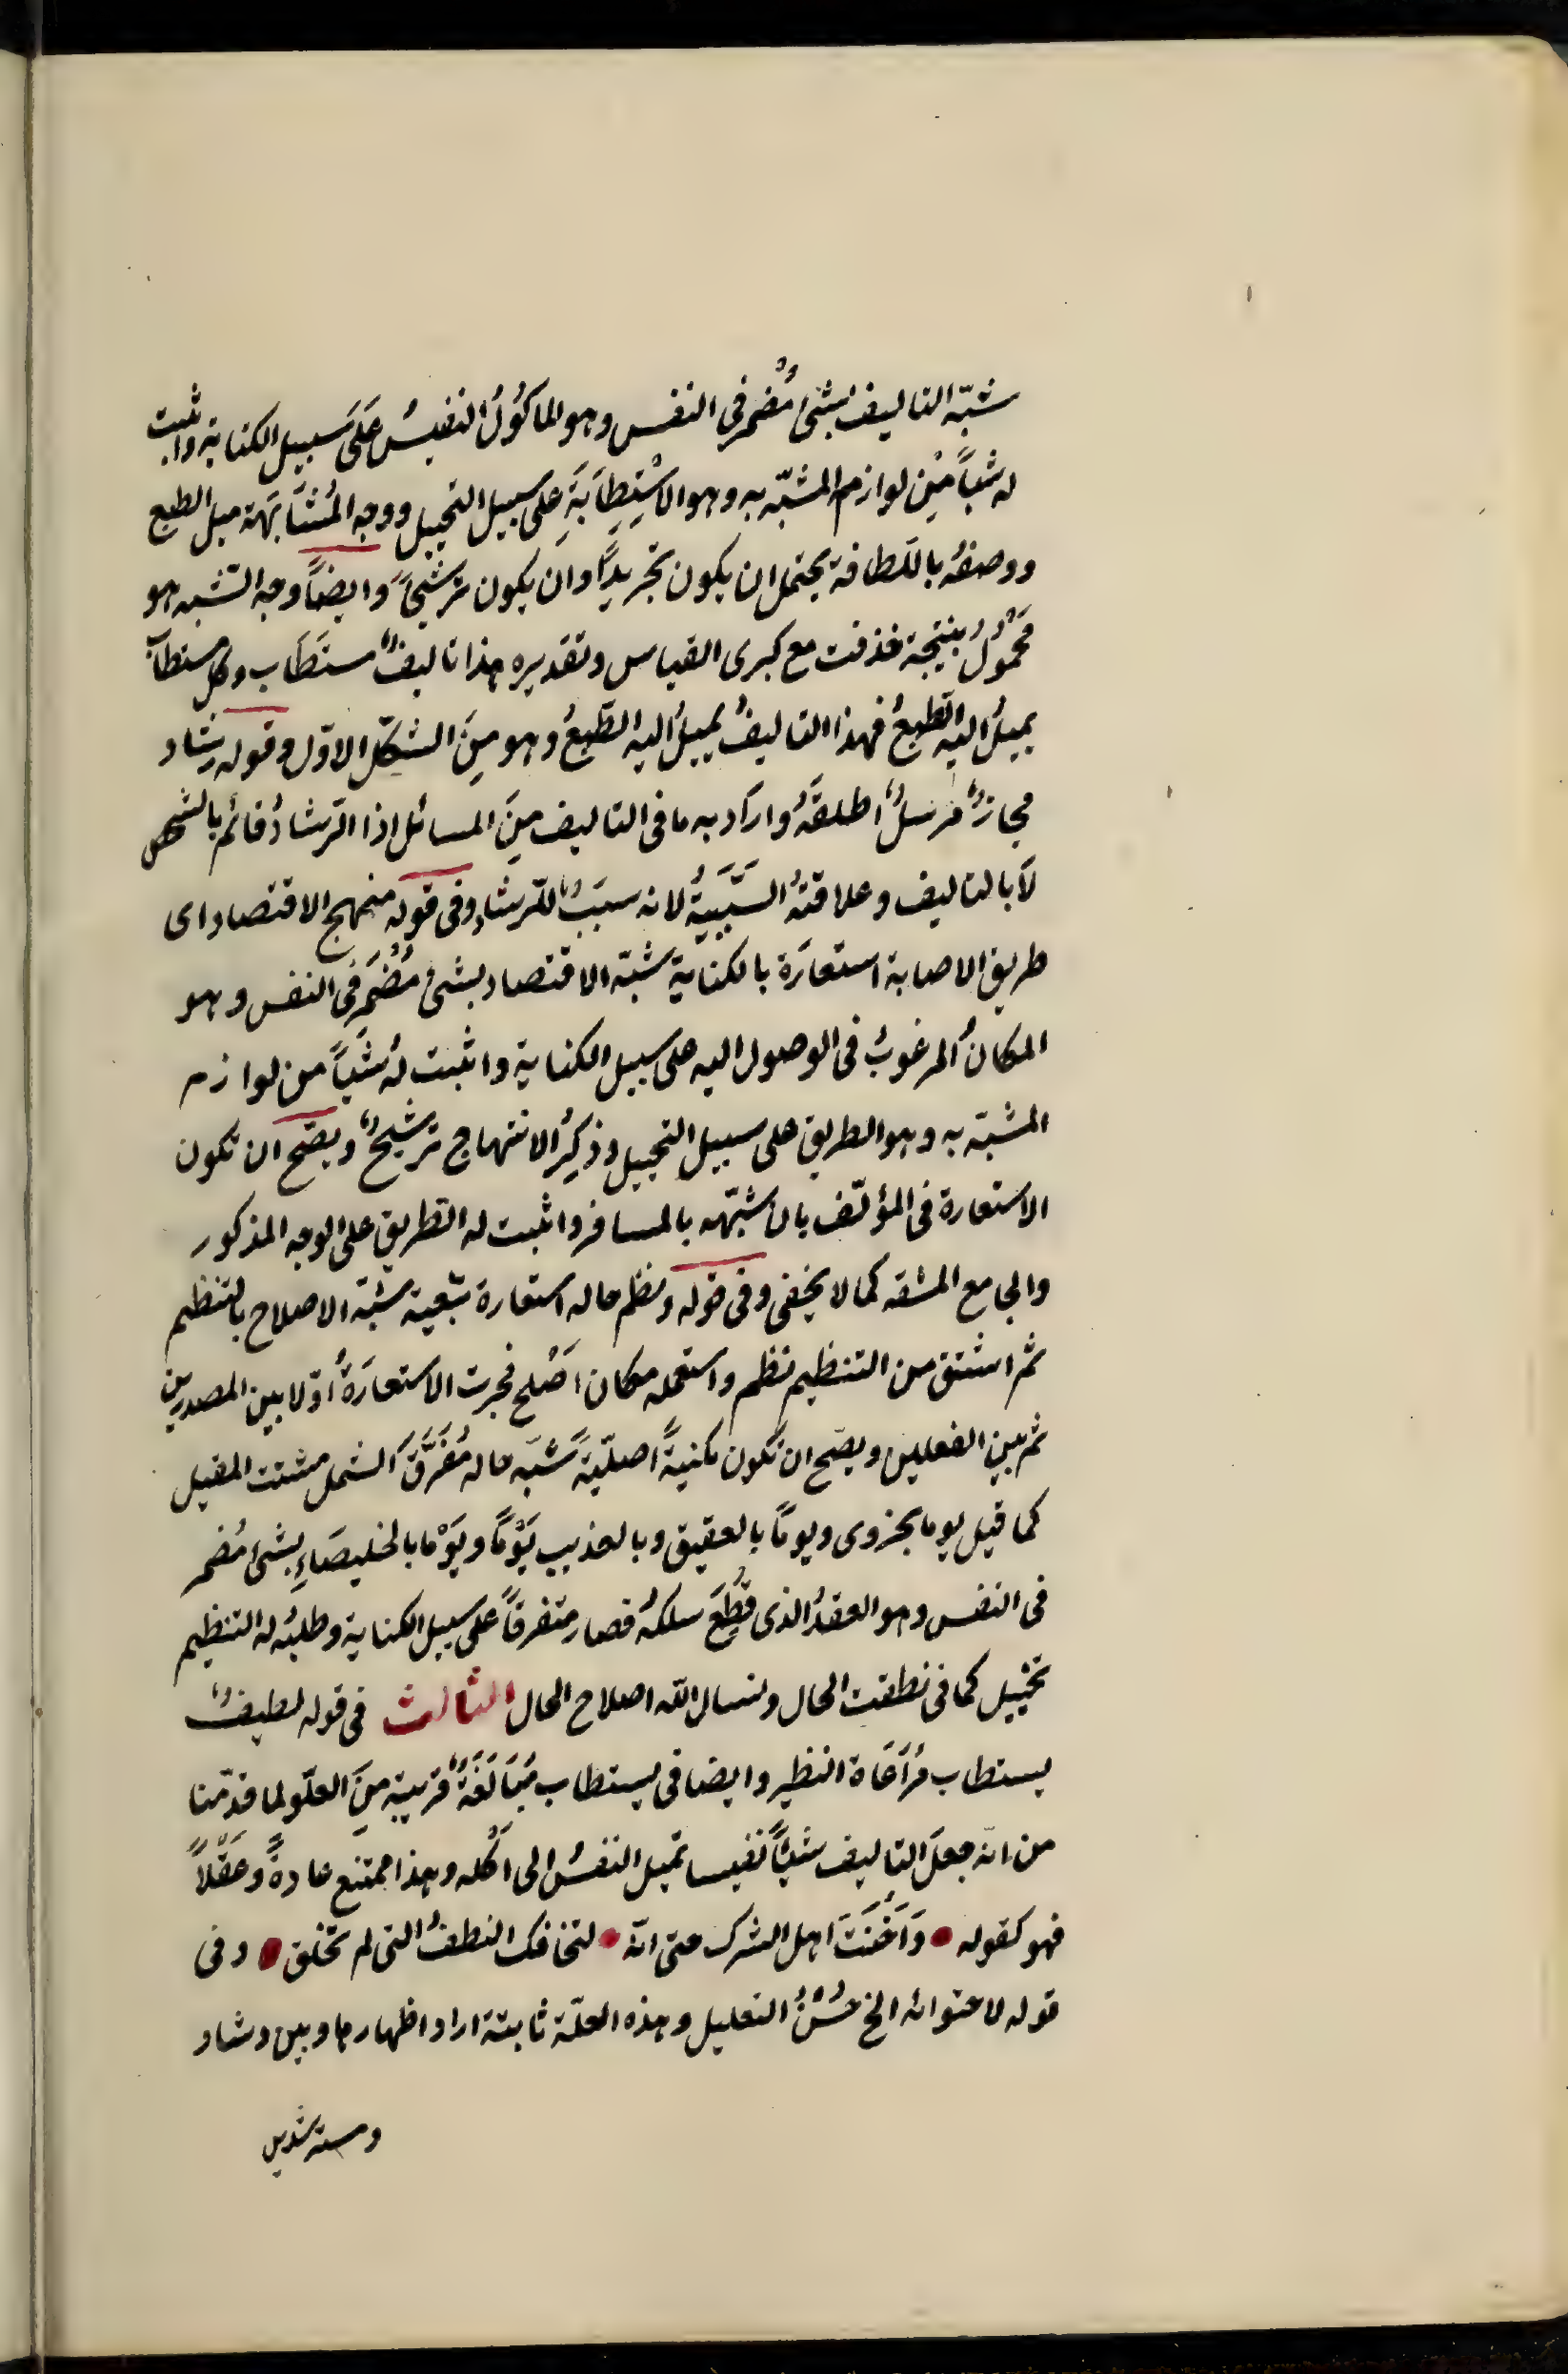 شبّه التاليف بشئ مُضمر فى النفس وهو الماكُولُ النفيسُ عَلَى سَبيل الكناية واثبت
له شيأً مِن لوازم المشبّه به وهو الاسْتِطَابَةِ على سبيل التخييل ووجه المُشَابَهة ميل الطبع
ووصفهُ باللّطافة يحتمل ان يكون تجريدًا وان يكون ترشيحًا وايضاً وجه الشّبه هو
مَحْمُولُ بنتيجة حذفت مع كبرى القياس وتقديره هذا تاليفٌ مستَطَاب وكل مستطاب
يميلُ اليه الطّبعُ فهذا التاليفُ يميلُ اليه الطّبعُ وهو مِنَ الشكل الاوّل وقوله رشاد
مجازٌ مرسلٌ اطلقَهُ وارَاد به ما فى التاليف مِنَ المسائل اذا الرّشادُ قائم بالشخص
لَا بالتاليف وعلاقتهُ السّبَبَيةُ لانه سبَبٌ للرّشاد وفى قوله منهج الاقتصاد اى
طريق الاصابة استعارَة بالكناية شبّه الاقتصاد بشئ مُضْمَر فى النفس وهو
المكانُ المرغوبُ فى الوصول اليه على سبيل الكناية واثبت لهُ شيأً من لوازم
المشبّه به وهو الطريق على سبيل التخييل وذِكرُ الانتهاج ترشيحٌ ويصّح ان تكون
الاستعارة فى المؤلّف بان شبّهه بالمسافر واثبت له الطريق على الوجه المذكور
والجامع المشقه كما لا يخفى وفى قوله ونظم حاله استعارة تبعية شبّه الاصلاح بالتنظيم
ثم اشتق من التنظيم نظم واستعمله مكان اَصْلح فجرت الاستعارَةُ اوّلا بين المصدرين
ثم بين الفعلين ويصّح ان تكون مكنيةً اصليّةً شبّه حاله مُفَرَّقَ الشمل مشتت المقيل
كما قيل يوما بحزوى ويوماً بالعقيق وبالعذيب يَوْماً ويَوْما بالخليصَاءِ بشئ مُضمر
فى النفس وهو العقدُ الذى قُطِعَ سلكهُ فصار متفرقاً على سبيل الكناية وطلبُه لهُ التنظيم
تخييل كما فى نطقت الحال ونسال اللّه اصلاح الحال الثالث فى قوله لطيفٌ
يستطاب مُرَاعَاة النظير وايضا فى يستطاب مُبَالَغَةٌ قريبة مِنَ الغلّو لما قدّمنا
من انّه جعلَ التاليف شيأً نفيسا تميل النفسُ الى اكْله وهذا ممتنع عادةً وعَقْلاً
فهو كقوله • وَأَخَفْتَ اهل الشرك حتى انّه • لتخافك النطفُ التى لم تخلق • وفى
قوله لاحتوائه الخ حُسْنُ التعليل وهذه العلّة ثابتة اراد اظهارها وبين رشاد
ومسترشدين